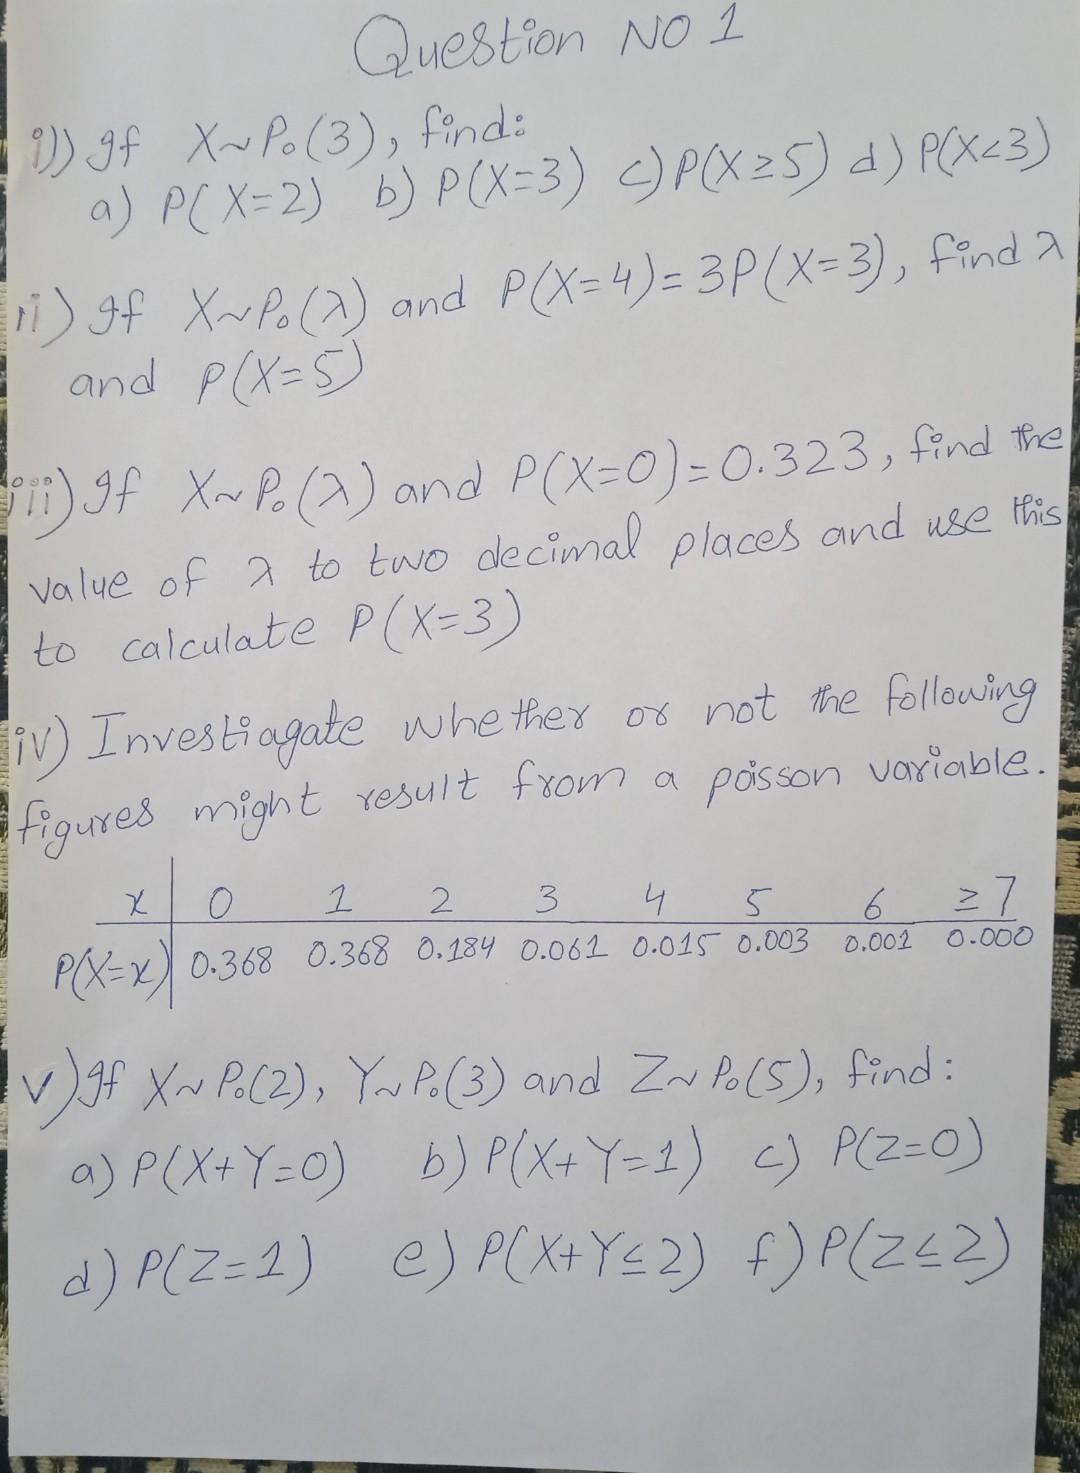 Question NO 1
i)) If X~Po(3), find:
a) P(X=2) b) P(X=3) c) P(X≥5) d) P(X<3)
ii) If X~Po(λ) and P(X=4)=3P(X=3), find λ
and P(X=5)
iii) If X~Po(λ) and P(X=0)=0.323, find the
value of λ to two decimal places and use this
to calculate P(X=3)
iv) Investiagate whether or not the following
figures might result from a poisson variable.
x 0 1 2 3 4 5 6 ≥7
P(X=x) 0.368 0.368 0.184 0.061 0.015 0.003 0.001 0.000
v) If X~Po(2), Y~Po(3) and Z~Po(5), find:
a) P(X+Y=0) b) P(X+Y=1) c) P(Z=0)
d) P(Z=1) e) P(X+Y≤2) f) P(Z≤2)